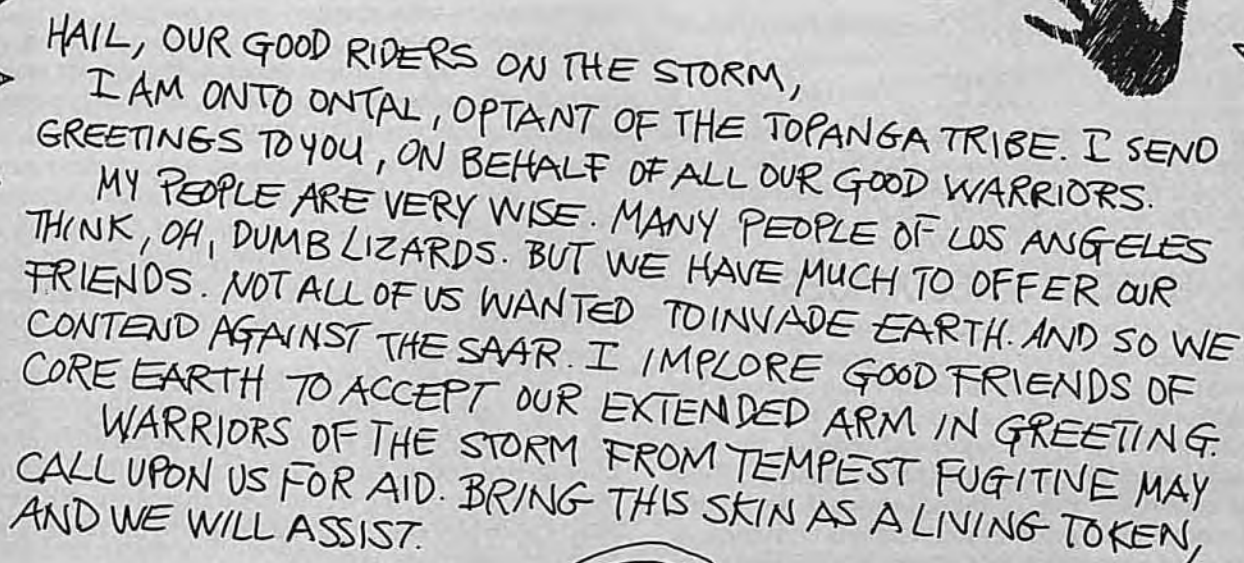 HAIL, OUR GOOD RIDERS ON THE STORM,
I AM ONTO ONTAL, OPTANT OF THE TOPANGA TRIBE. I SEND
GREETINGS TO YOU, ON BEHALF OF ALL OUR GOOD WARRIORS.
MY PEOPLE ARE VERY WISE. MANY PEOPLE OF LOS ANGELES
THINK, OH, DUMB LIZARDS. BUT WE HAVE MUCH TO OFFER OUR
FRIENDS. NOT ALL OF US WANTED TO INVADE EARTH. AND SO WE
CONTEND AGAINST THE SAAR. I IMPLORE GOOD FRIENDS OF
CORE EARTH TO ACCEPT OUR EXTENDED ARM IN GREETING.
WARRIORS OF THE STORM FROM TEMPEST FUGITIVE MAY
CALL UPON US FOR AID. BRING THIS SKIN AS A LIVING TOKEN,
AND WE WILL ASSIST.